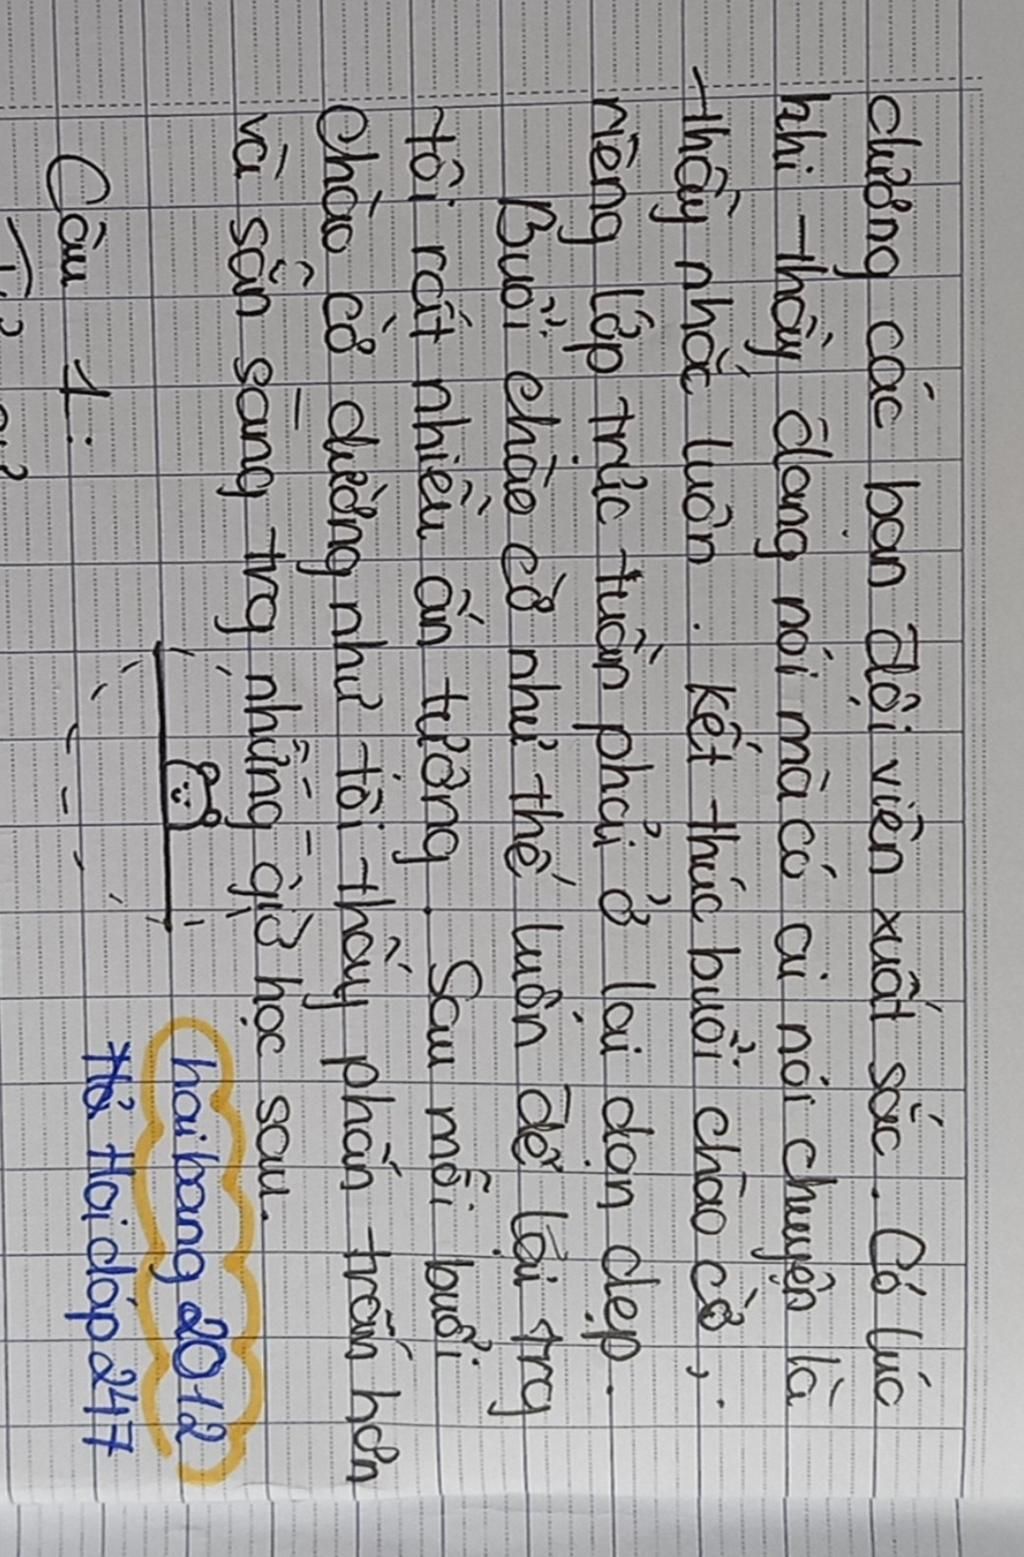 chương các bạn đội viên xuất sắc. Có lúc
khi thầy đang nói mà có ai nói chuyện là
thầy nhắc luôn. Kết thúc buổi chào cờ,
riêng lớp trực tuần phải ở lại dọn dẹp.
Buổi chào cờ như thế luôn để lại trg
tôi rất nhiều ấn tượng. Sau mỗi buổi
chào cờ dường như tôi thấy phấn trấn hơn
và sẵn sàng trg những giờ học sau.
haibang2012
Hoidap247
Câu 1: